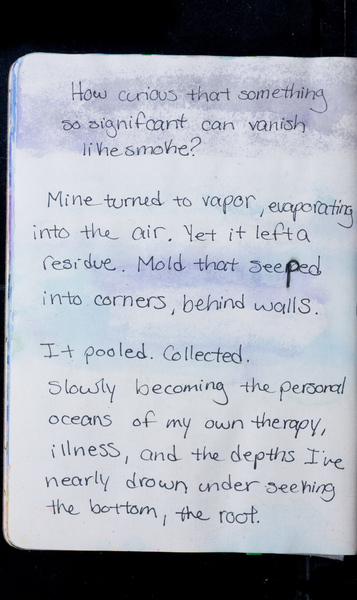 How curious that something
so significant can vanish
like smoke?
Mine turned to vapor, evaporating
into the air. Yet it left a
residue. Mold that seeped
into corners, behind walls.
It pooled. Collected.
Slowly becoming the personal
oceans of my own therapy,
illness, and the depths I've
nearly drown under seeking
the bottom, the root.